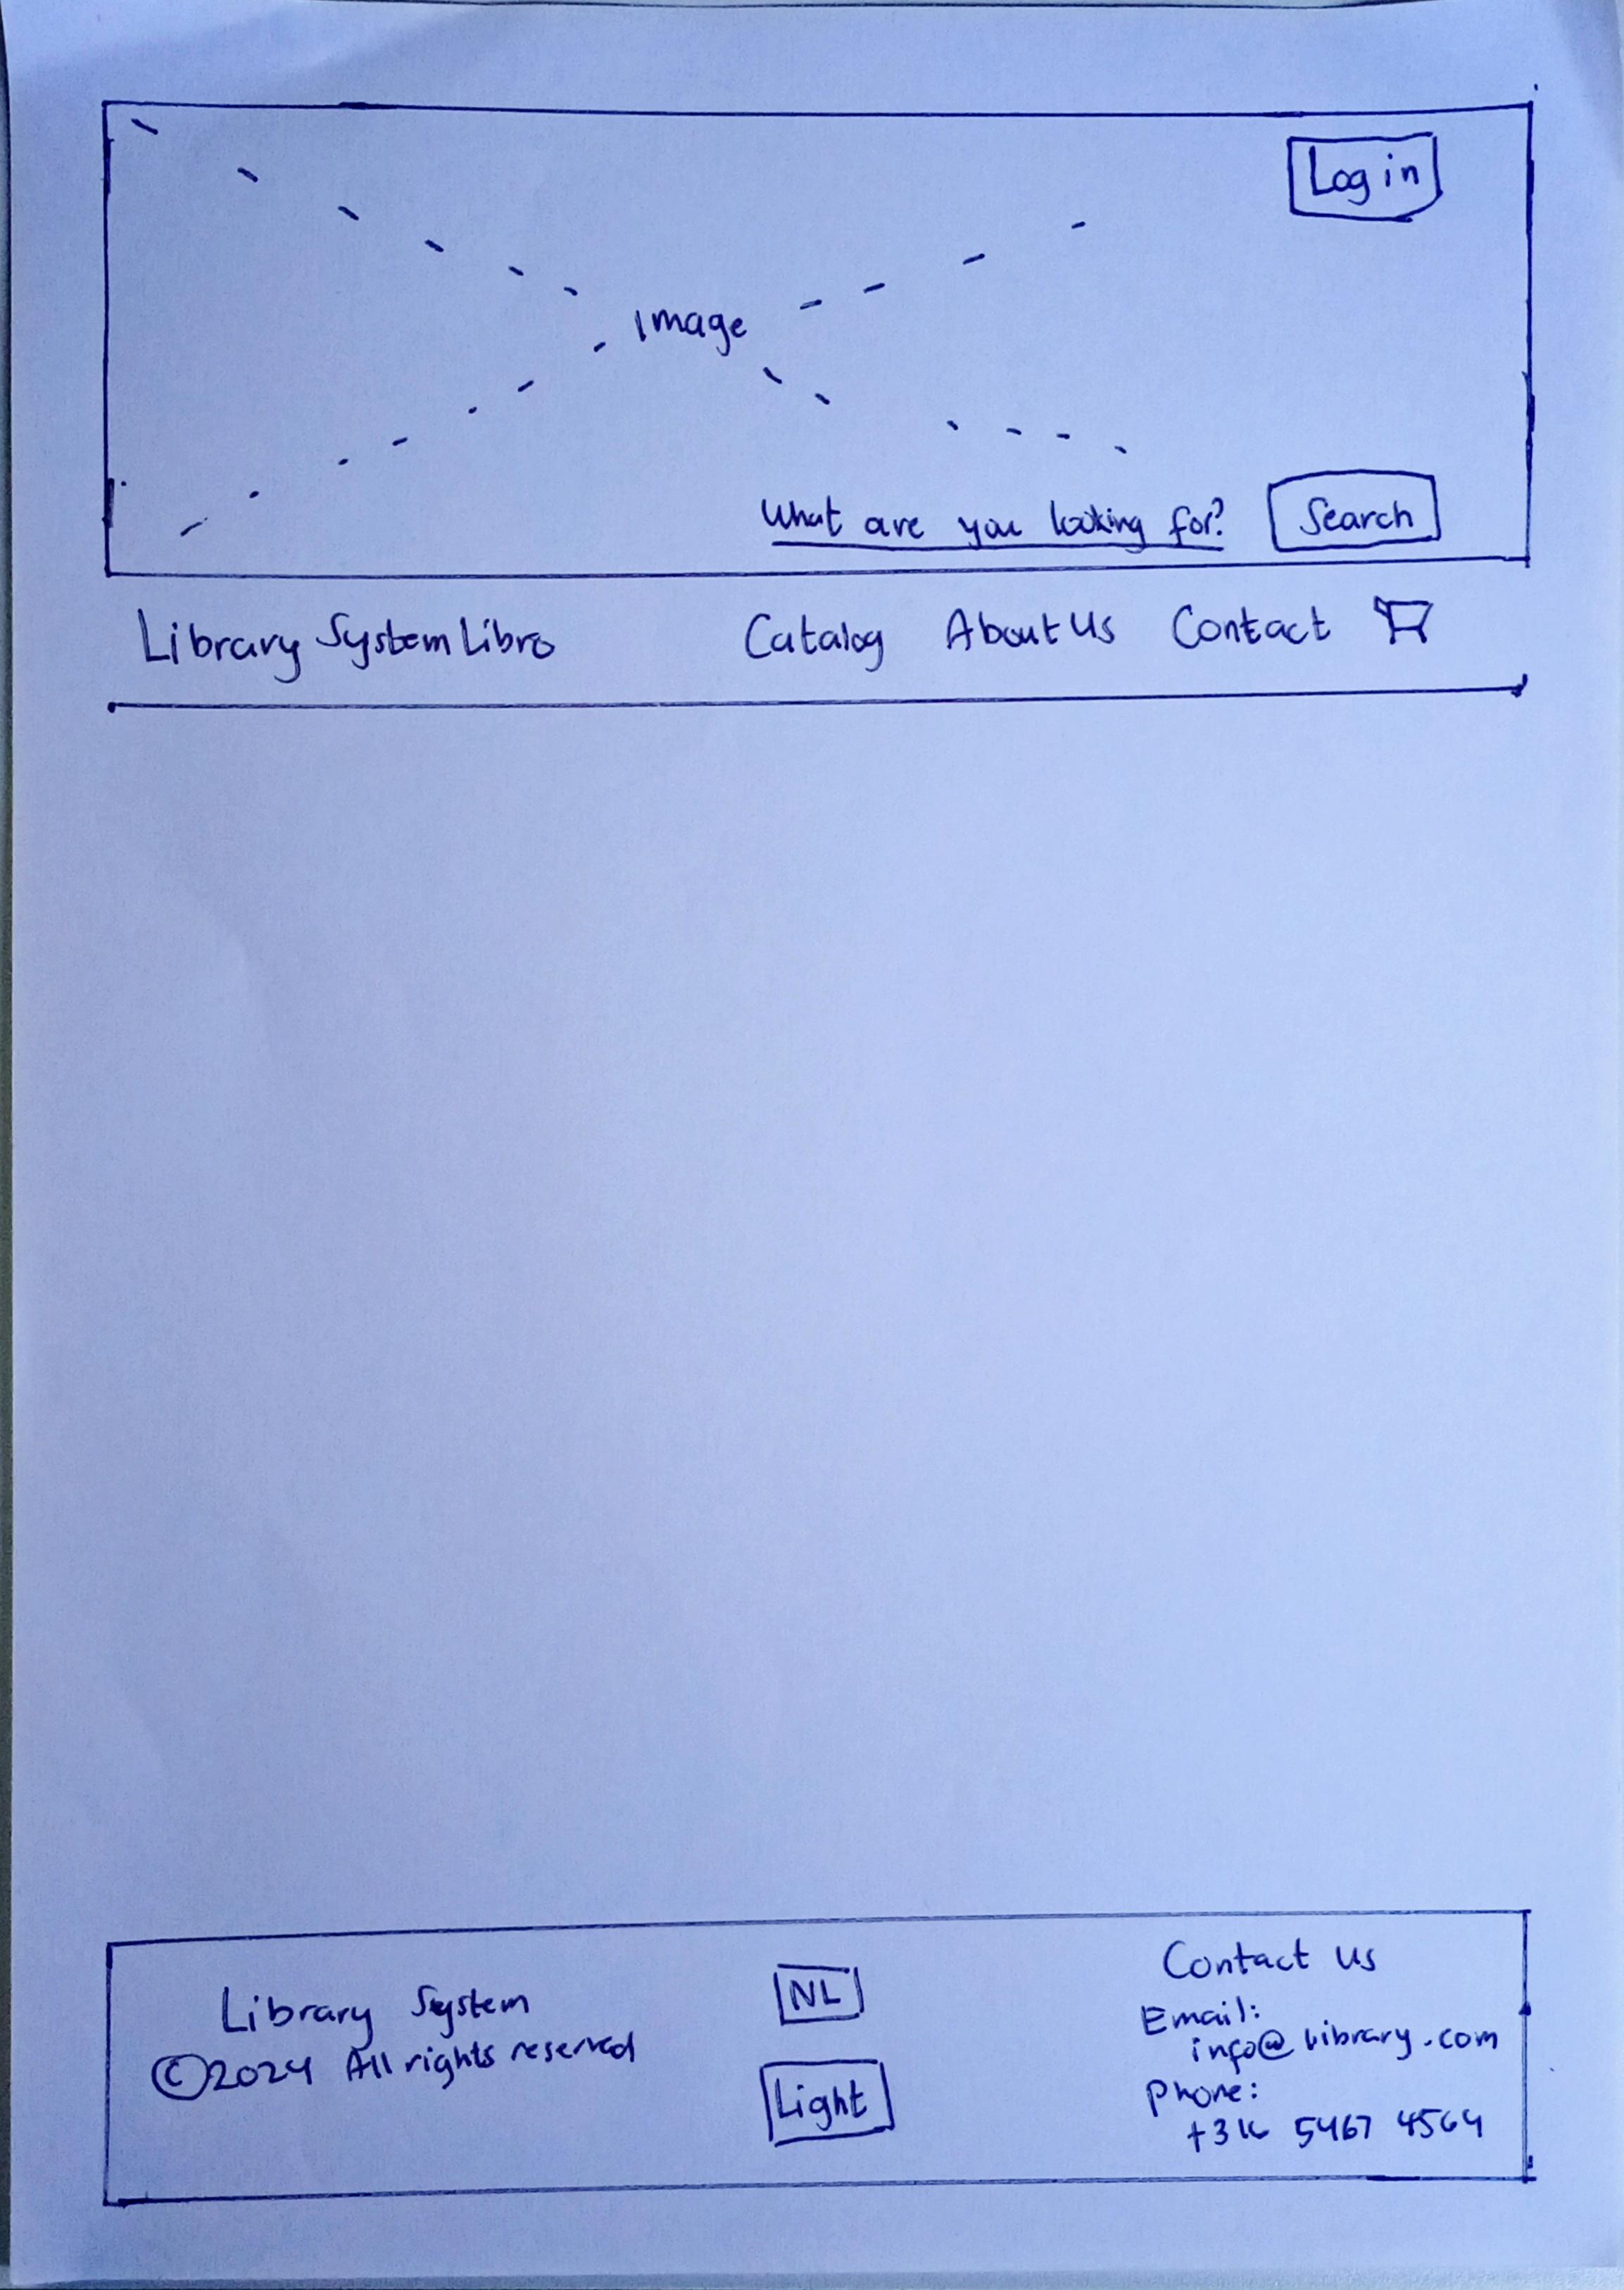 Log in
Image
What are you looking for? Search
Library System Libro Catalog About Us Contact
Library System
©2024 All rights reserved
NL
Light
Contact us
Email:
info@library.com
Phone:
5467 4564